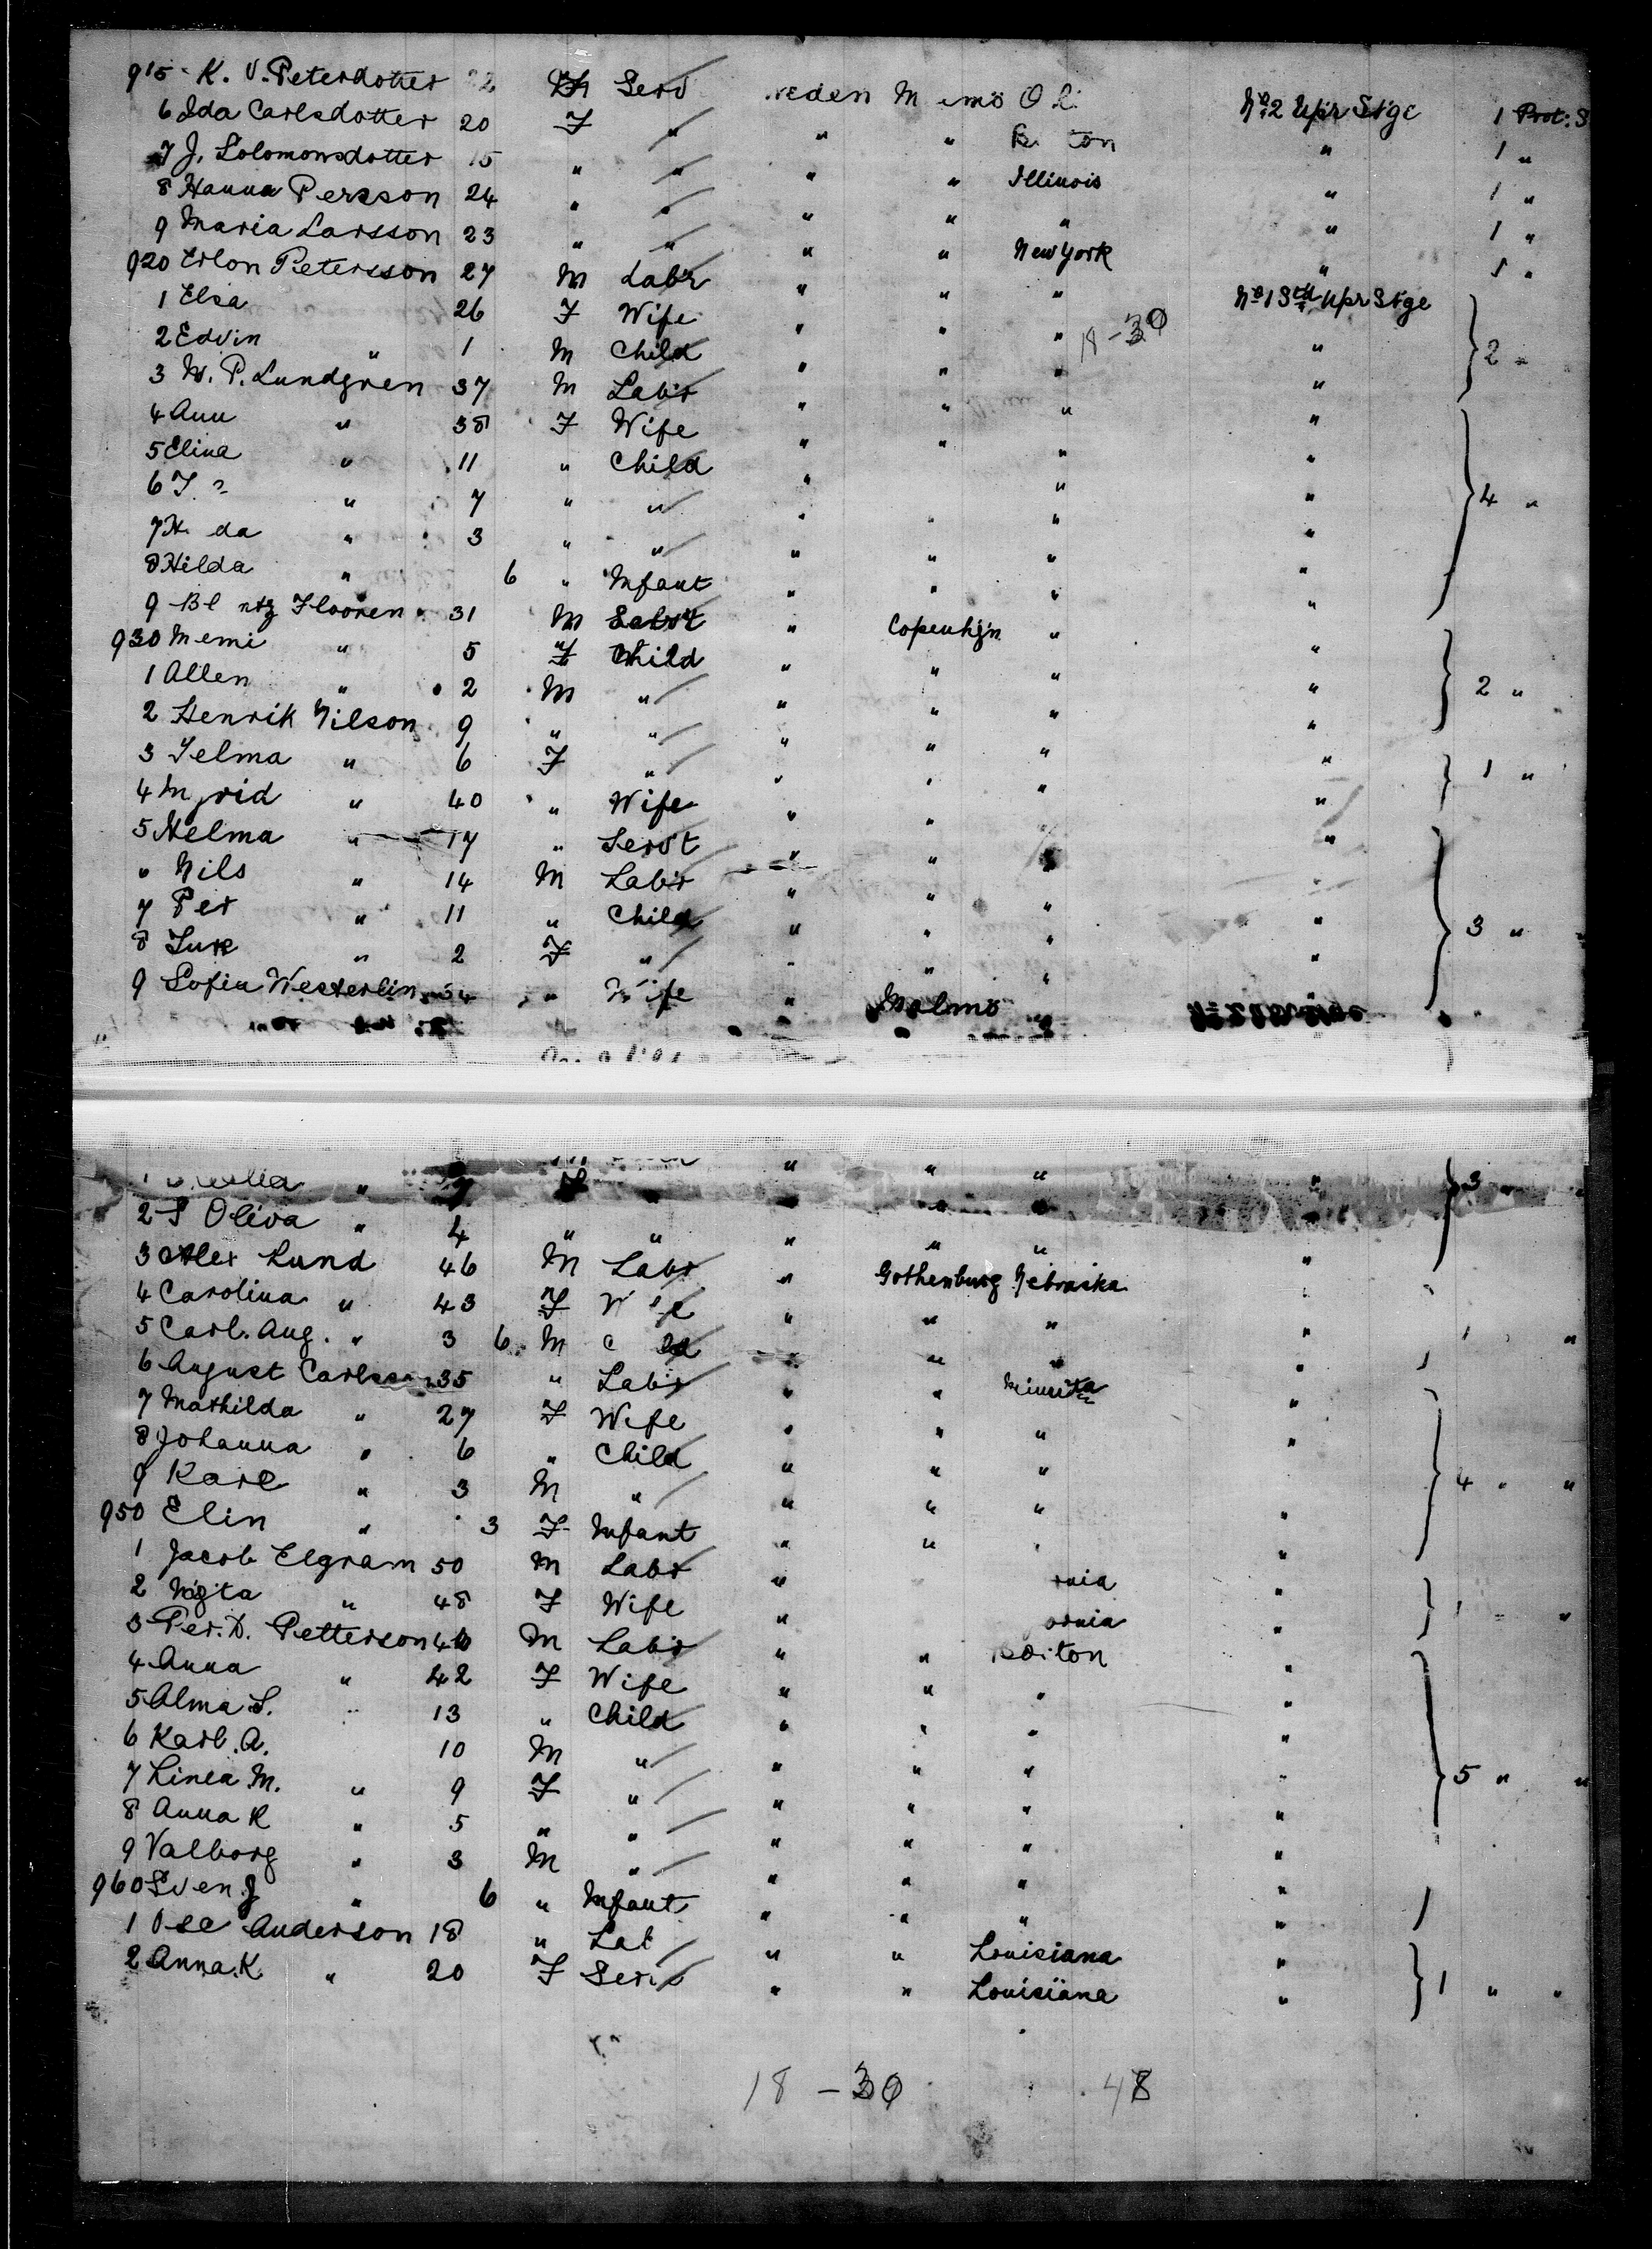 915 K. V. Petersdotter 22 F Serv Sweden M mö O N:o 2 Upr Stge 1 Prot: S
6 Ida Carlsdotter 20 F " " " B ton " 1 "
7 J. Solomonsdotter 15 " " " " Illinois " 1 "
8 Hanna Persson 24 " " " " " " 1 "
9 Maria Larsson 23 " " " " New York " 1 "
920 Erlon Petersson 27 M Labr " " " No 1 Stb Upr Stge
1 Elsa 26 F Wife " " " 18-30 " 2 "
2 Edvin " 1 M Child " " " "
3 W. P. Lundgren 37 M Labr " " " "
4 Ann " 38 F Wife " " " "
5 Elina " 11 " Child " " "
6 " 7 " " " " " " 4 "
7 H da " 3 " " " " " "
8 Hilda " 6 " Infant " " " "
9 Bl ntz Flooren 31 M Labr " Copenhgn " "
930 Memi " 5 F Child " " " "
1 Allen " 2 M " " " " " 2 "
2 Henrik Nilson 9 " " " " " "
3 Selma " 6 F " " " " " 1 "
4 Ingrid " 40 " Wife " " "
5 Helma " 17 " Servt " " "
" Nils " 14 M Labr " " " "
7 Per " 11 " Child " " " " 3 "
8 " 2 F " " " " "
9 Sofia Westerlin 34 " Wife " Malmö "
" " " 3 "
2 S Oliva " 4 " " " " " "
3 Alex Lund 46 M Labr " Gothenburg Nebraska "
4 Carolina " 43 F W fe " " " " 1 "
5 Carl. Aug. " 3 6 M C ld " " " "
6 August Carlsson 35 " Labr " " "
7 Mathilda " 27 F Wife " " " "
8 Johanna " 6 " Child " " "
9 Karl " 3 M " " " " " 4 " "
950 Elin " 3 F Infant " " " "
1 Jacob Elgram 50 M Labr " rnia "
2 " 48 F Wife " ornia " 1 " "
3 Per. D. Petterson 46 M Labr " " Boston "
4 Anna " 42 F Wife " " " "
5 Alma S. " 13 " Child " " " "
6 Karl. A. 10 M " " " " "
7 Linea M. " 9 F " " " " " 5 " "
8 Anna K " 5 " " " " " "
9 Valborg " 3 M " " " " "
960 Sven. J " 6 " Infant " " " "
1 Osc Anderson 18 " Lab " " Louisiana "
2 Anna. K. " 20 F Serv " " Louisiana " 1 " "
18 - 30 48